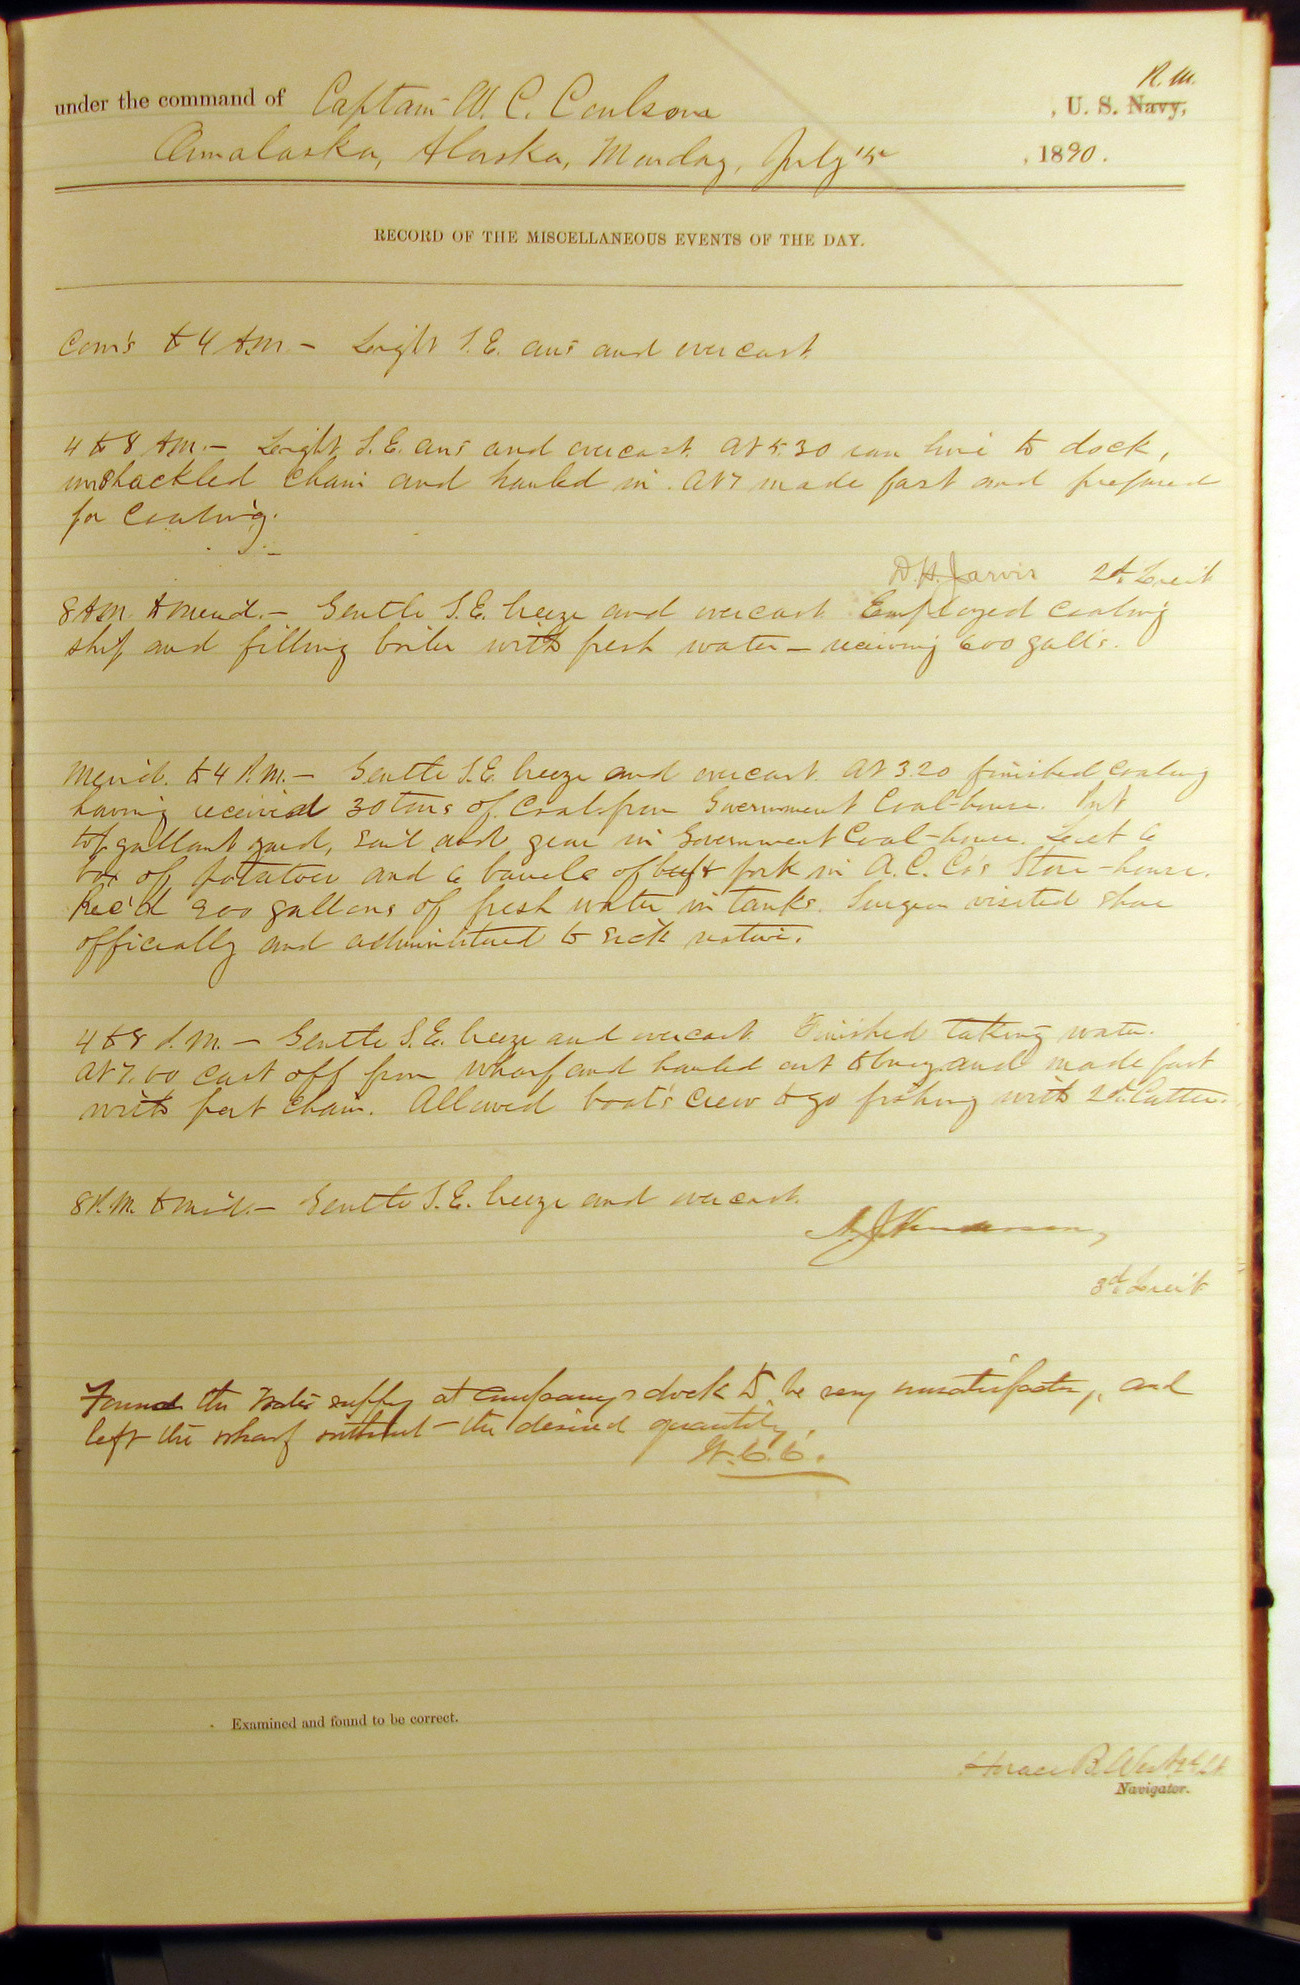 R. M.
under the command of Captain W. C. Coulson , U. S. Navy,
Ounalaska, Alaska, Monday, July , 1890.
RECORD OF THE MISCELLANEOUS EVENTS OF THE DAY.
Com's to 4 A.M. – Light S.E. airs and overcast
4 to 8 A.M. – Light S.E. airs and overcast. At 5.30 ran line to dock,
unshackled chain and hauled in. At 7 made fast and prepared
for Coaling.
D. H. Jarvis 2d Lieut
8 A.M. to Merid. – Gentle S.E. breeze and overcast. Employed coaling
ship and filling boiler with fresh water – receiving 600 gall's.
Merid. to 4 P.M. – Gentle S.E. breeze and overcast. At 3.20 finished coaling
having received 30 tons of Coal from Government Coal-house. Put
top gallant yard, sail and gear in Government Coal-house. 6
box of potatoes and 6 barrels of beef & pork in A. C. Co's Store-house.
Rec'd 900 gallons of fresh water in tanks. Surgeon visited shore
officially and administered to sick native.
4 to 8 P.M. – Gentle S.E. breeze and overcast. Finished taking water.
At 7.00 cast off from wharf and hauled out to buoy and made fast
with port chain. Allowed boat's crew to go fishing with 2d. Cutter.
8 P.M. to mid. – Gentle S.E. breeze and overcast.
3d Lieut
Found the water supply at company's dock to be very unsatisfactory, and
left the wharf without the desired quantity.
W. C. C.
Examined and found to be correct.
Horace B. West 2d Lt.
Navigator.